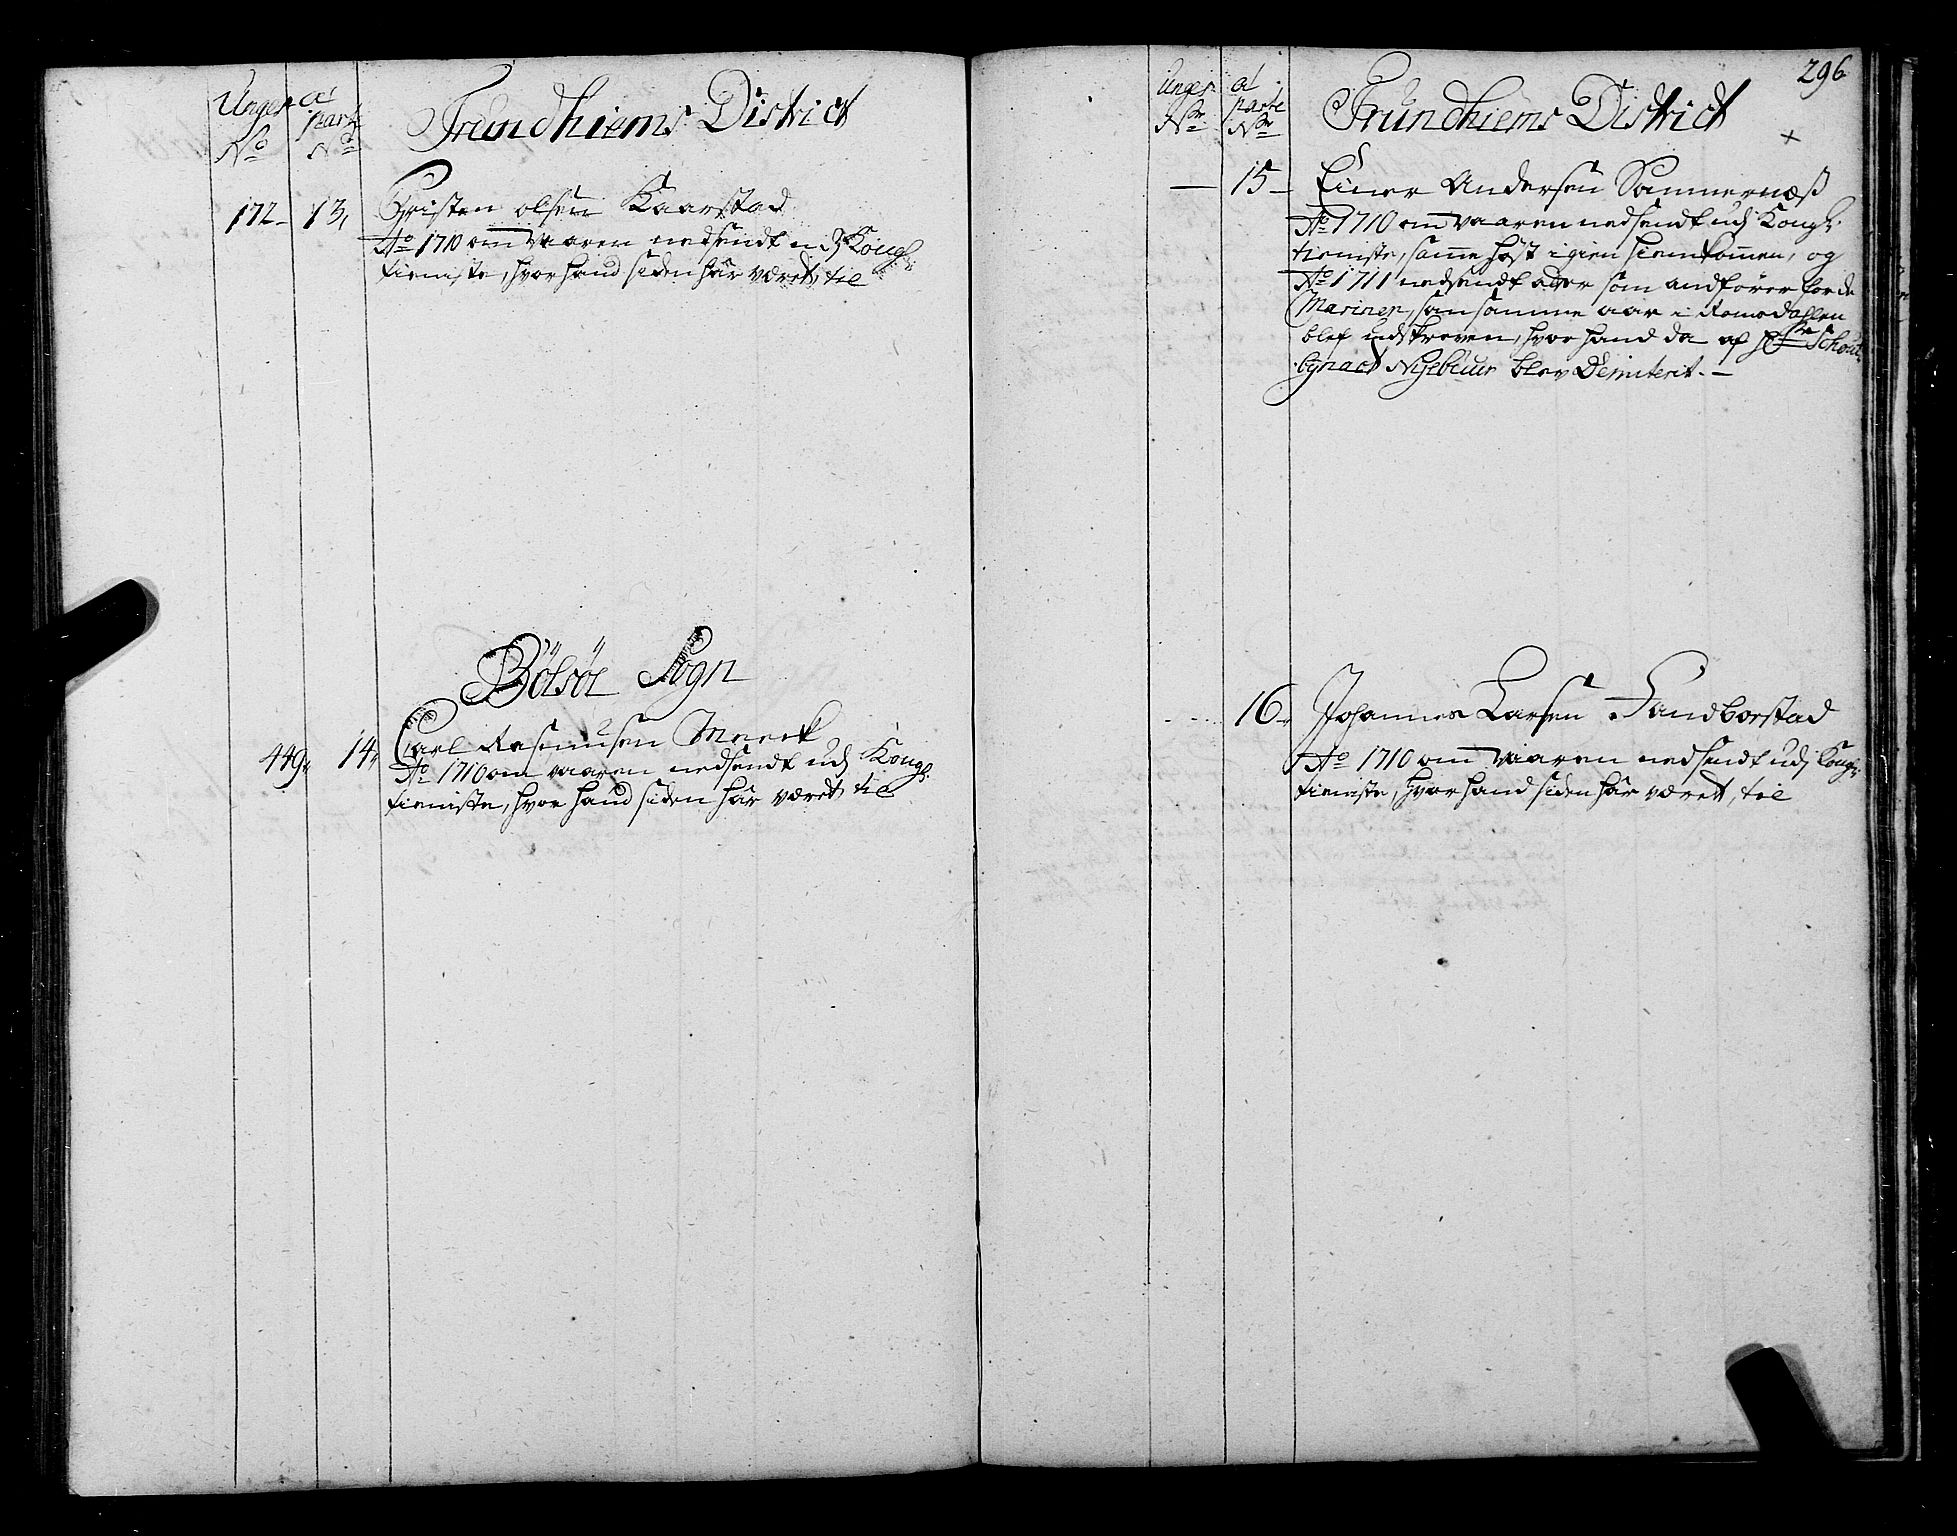 Unger
No
a
parte
No
Trundhiems District
172 13,
Christen olsen Kaarstad
Ao 1710 om Vaaren nedsendt udj Kongl:
tieniste, hvor hand siden hâr været, til
Bölsöe Sogn
449, 14,
Carl Rasmusen Meeck
Ao 1710 om vaaren nedsendt udj Kongl:
tieniste, hvor hand siden hâr været, til
296
Unger
Nr
a
parte
Nr
Trundhiems District
+
— 15 –
Einer Andersen Sammernæß
Ao 1710 om vaaren nedsendt udj Kongl:
tieniste, same høst igien hiemkomen, og
Ao 1711 nedsendt som andförer for de
Mariner, som samme aar i Romsdahlen
blef udskreven, hvor hand da af Hr Schout
bÿnact blev Dimiterit. –
16,
Johannes Larsen Sandborstad
Ao 1710 om vaaren nedsendt udj Kongl:
tieniste, hvor hand siden hâr været, til